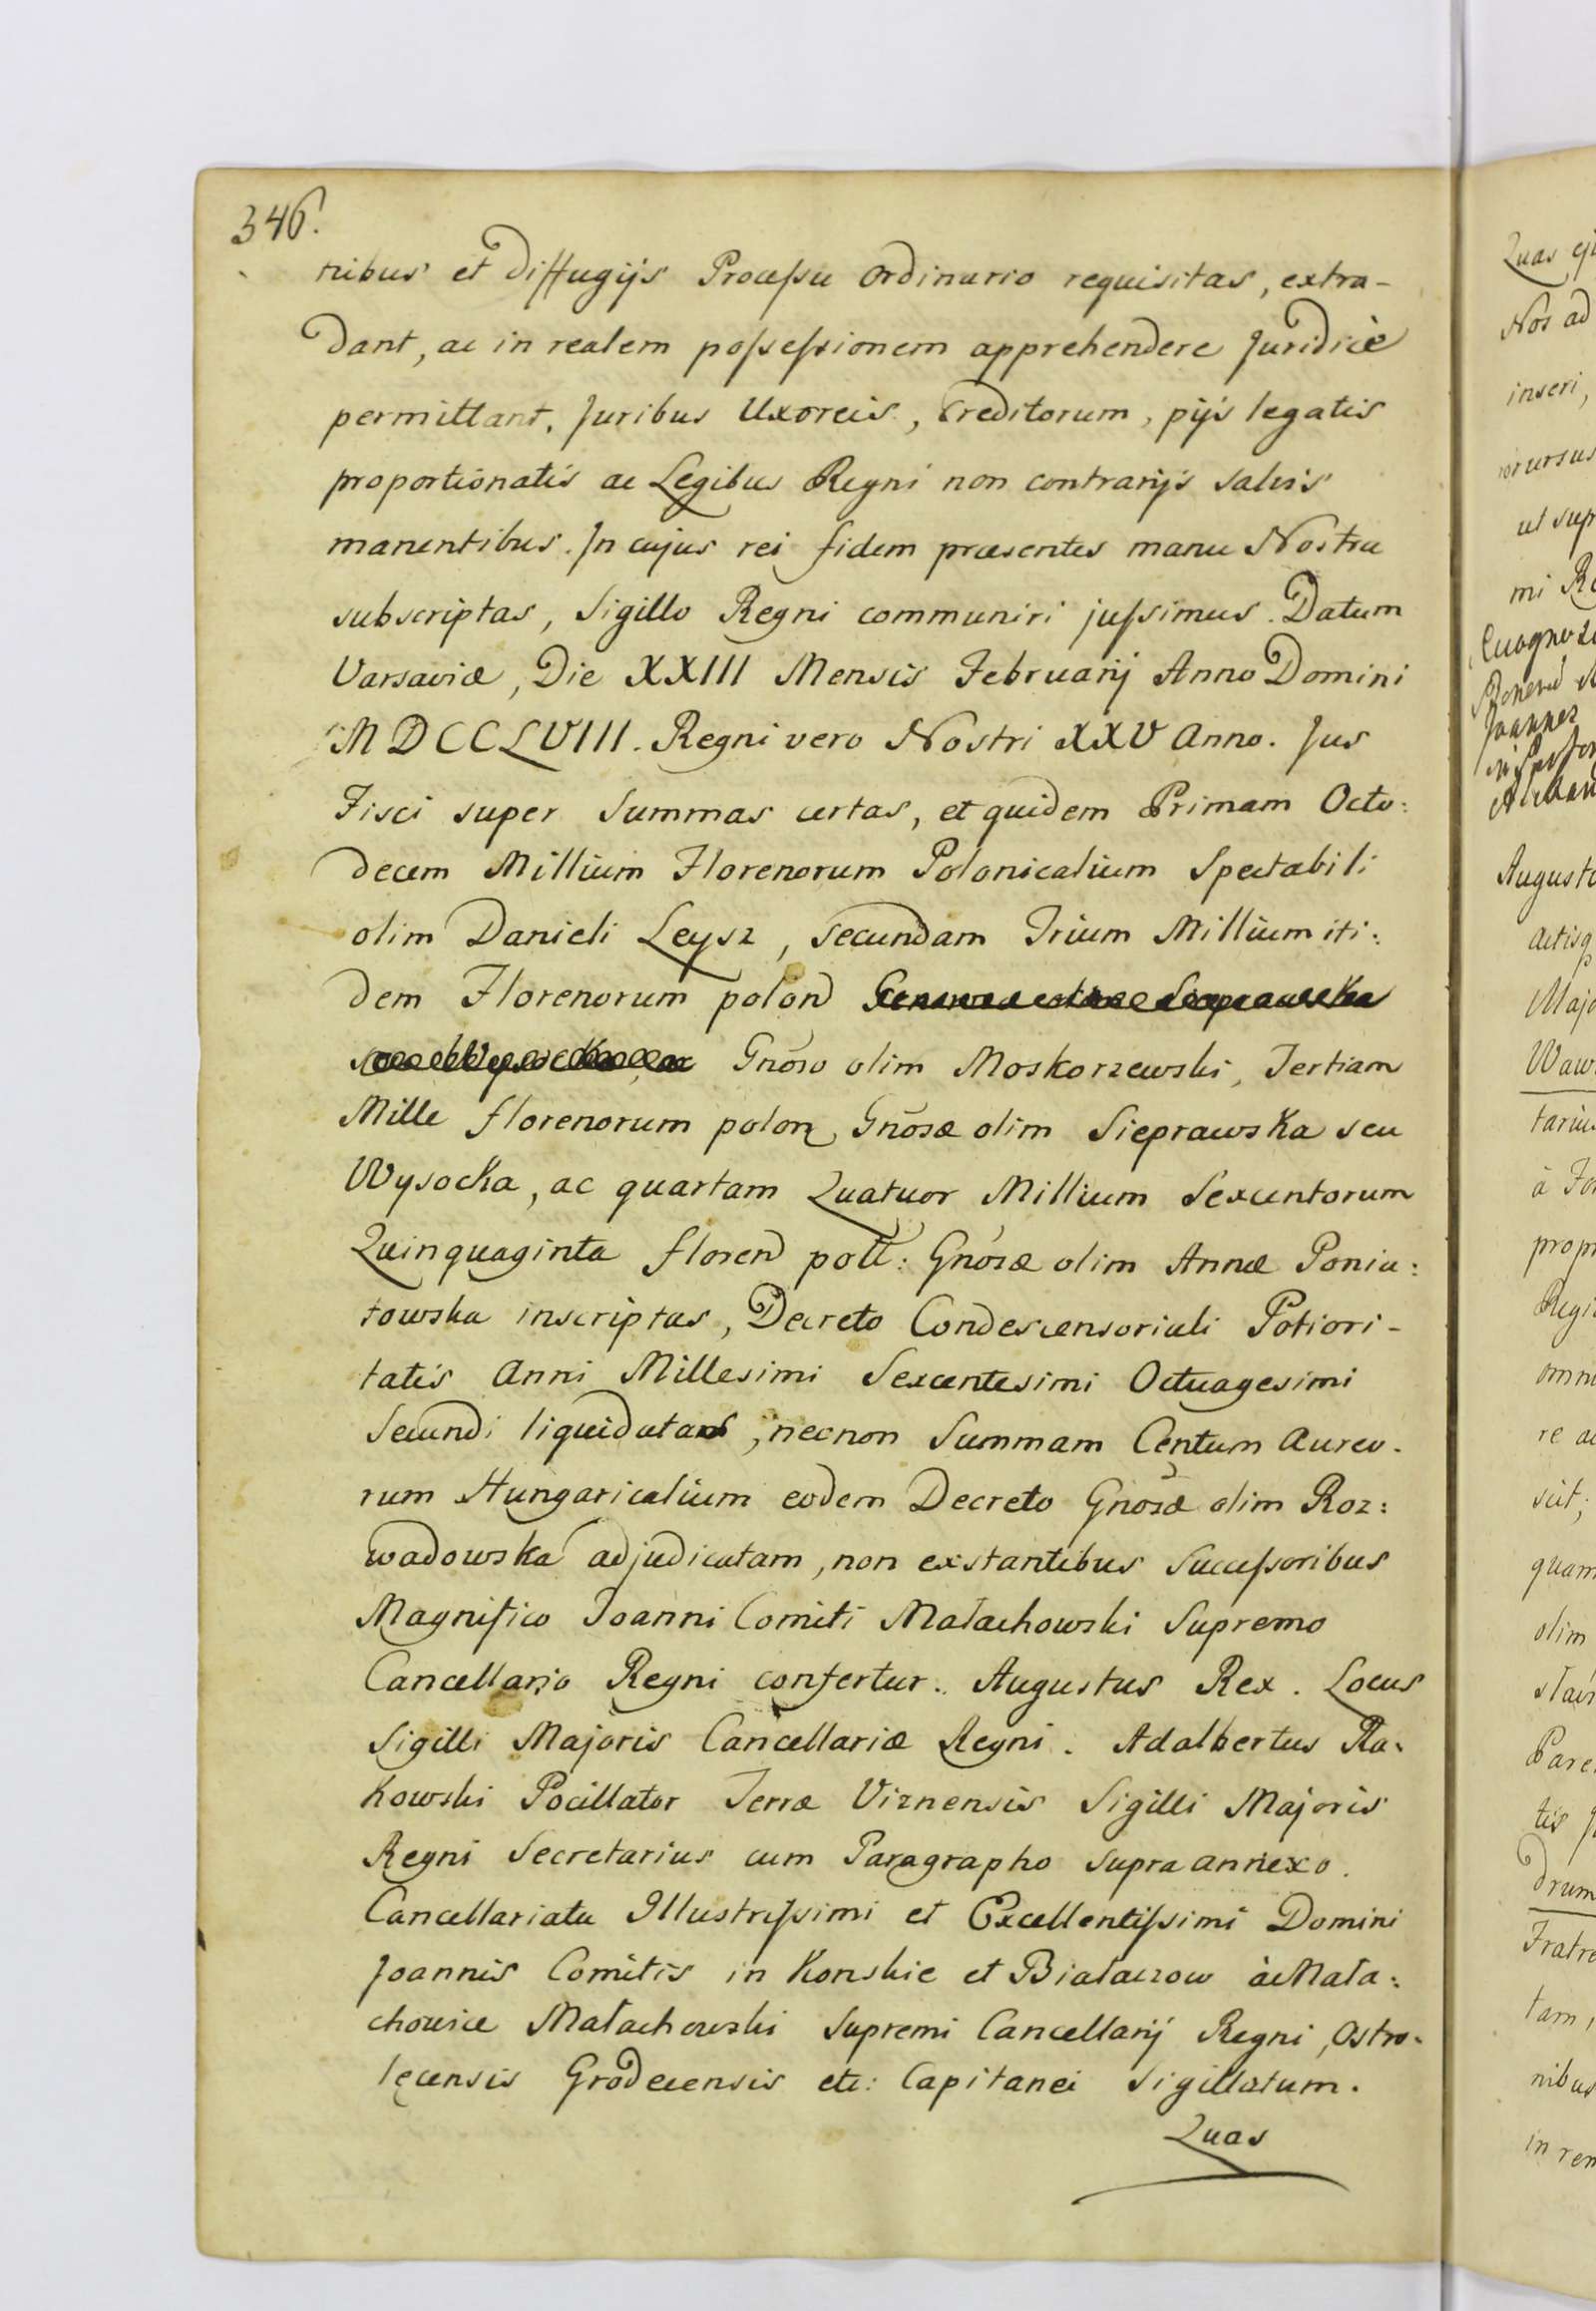 346.
ribus et diffugijs Processu ordinario requisitas, extra-
dant, ac in realem possessionem apprehendere Juridicè
permittant, Juribus Uxoreis, Creditorum, pijs legatis
proportionatis ac Legibus Regni non contrarijs salvis
manentibus. In cujus rei fidem præsentes manu Nostra
subscriptas, Sigillo Regni communiri jussimus. Datum
Varsaviæ, Die XXIII Mensis Februarij Anno Domini
MDCCLVIII. Regni vero Nostri XXV Anno. Jus
Fisci super Summas certas, et quidem Primam Octo:
decem Millium Florenorum Polonicalium Spectabili
olim Danieli Leysz, Secundam Trium Millium iti:
dem Florenorum polon
Gnõso olim Moskorzewski, Tertiam
Mille florenorum polon Gnõsæ olim Sieprawska seu
Wysocka, ac quartam Quatuor Millium Sexcentorum
Quinquaginta floren poll: Gnõsæ olim Annæ Ponia:
towska inscriptas, Decreto Condescensoriali Potiori-
tatis Anni Millesimi Sexcentesimi Octuagesimi
Secundi liquidatas, necnon Summam Centum Aureo-
rum Hungaricalium eodem Decreto Gnõsæ olim Roz:
wadowska adjudicatam, non exstantibus Successoribus
Magnifico Joanni Comiti Małachowski Supremo
Cancellario Regni confertur. Augustus Rex. Locus
Sigilli Majoris Cancellariæ Regni. Adalbertus Ra-
kowski Pocillator Terræ Viznensis Sigilli Majoris
Regni Secretarius cum Paragrapho supra annexo.
Cancellariatu Illustrissimi et Excellentissimi Domini
Joannis Comitis in Konskie et Białaczow à Mała:
chowice Małachowski Supremi Cancellarij Regni, Ostro-
lęcensis Grodecensis etc: Capitanei Sigillatum.
Quas
Nos ad
inseri,
ut sup
mi
Joannes
Augusto
Majo
Waw
à
prop
Regi
omn
re
quam
olim
Pare
drum
Fratre
tam,
nibus
in rem